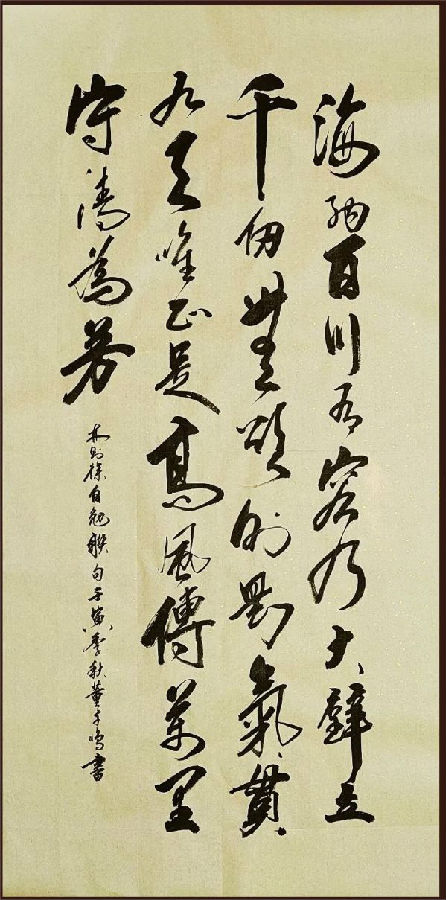 海納百川有容乃大壁立
千仞無欲則剛氣貫
九天唯正是高風傳萬里
守清為芳
林則徐自勉聯句壬寅季秋董鳴書